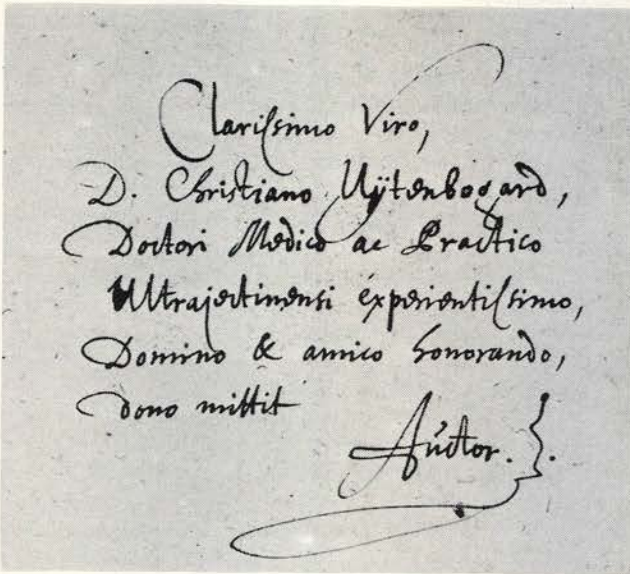 Clarissimo Viro,
D. Christiano Uÿtenbogard,
Doctori Medico ac Practico
Ultrajectinensi experientissimo,
Domino & amico honorando,
dono mittit
Aúctor.